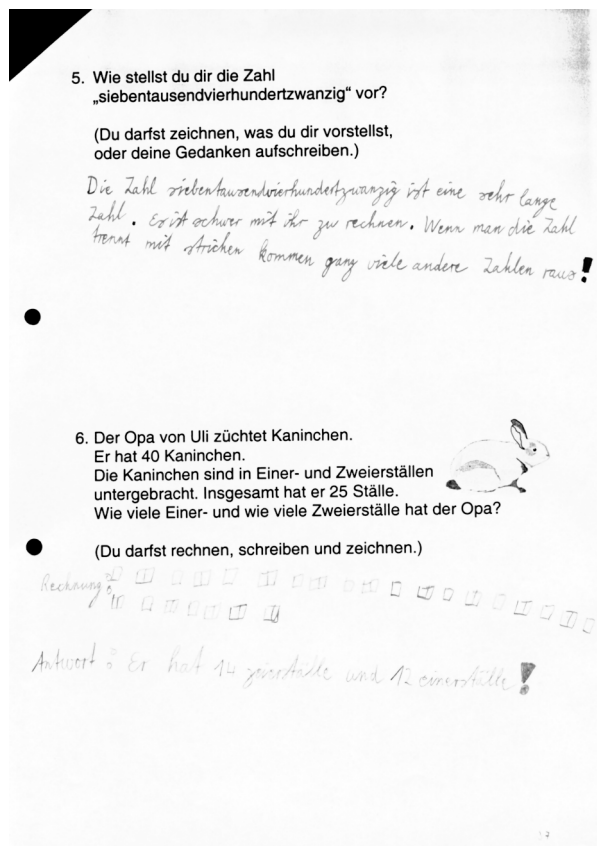 5. Wie stellst du dir die Zahl
„siebentausendvierhundertzwanzig“ vor?
(Du darfst zeichnen, was du dir vorstellst,
oder deine Gedanken aufschreiben.)
Die Zahl siebentausendvierhundertzwanzig ist eine sehr lange
Zahl. Es ist schwer mit ihr zu rechnen. Wenn man die Zahl
trennt mit strichen kommen ganz viele andere Zahlen raus!
6. Der Opa von Uli züchtet Kaninchen.
Er hat 40 Kaninchen.
Die Kaninchen sind in Einer- und Zweierställen
untergebracht. Insgesamt hat er 25 Ställe.
Wie viele Einer- und wie viele Zweierställe hat der Opa?
(Du darfst rechnen, schreiben und zeichnen.)
Rechnung:
Antwort: Er hat 14 und 12 einerställe!